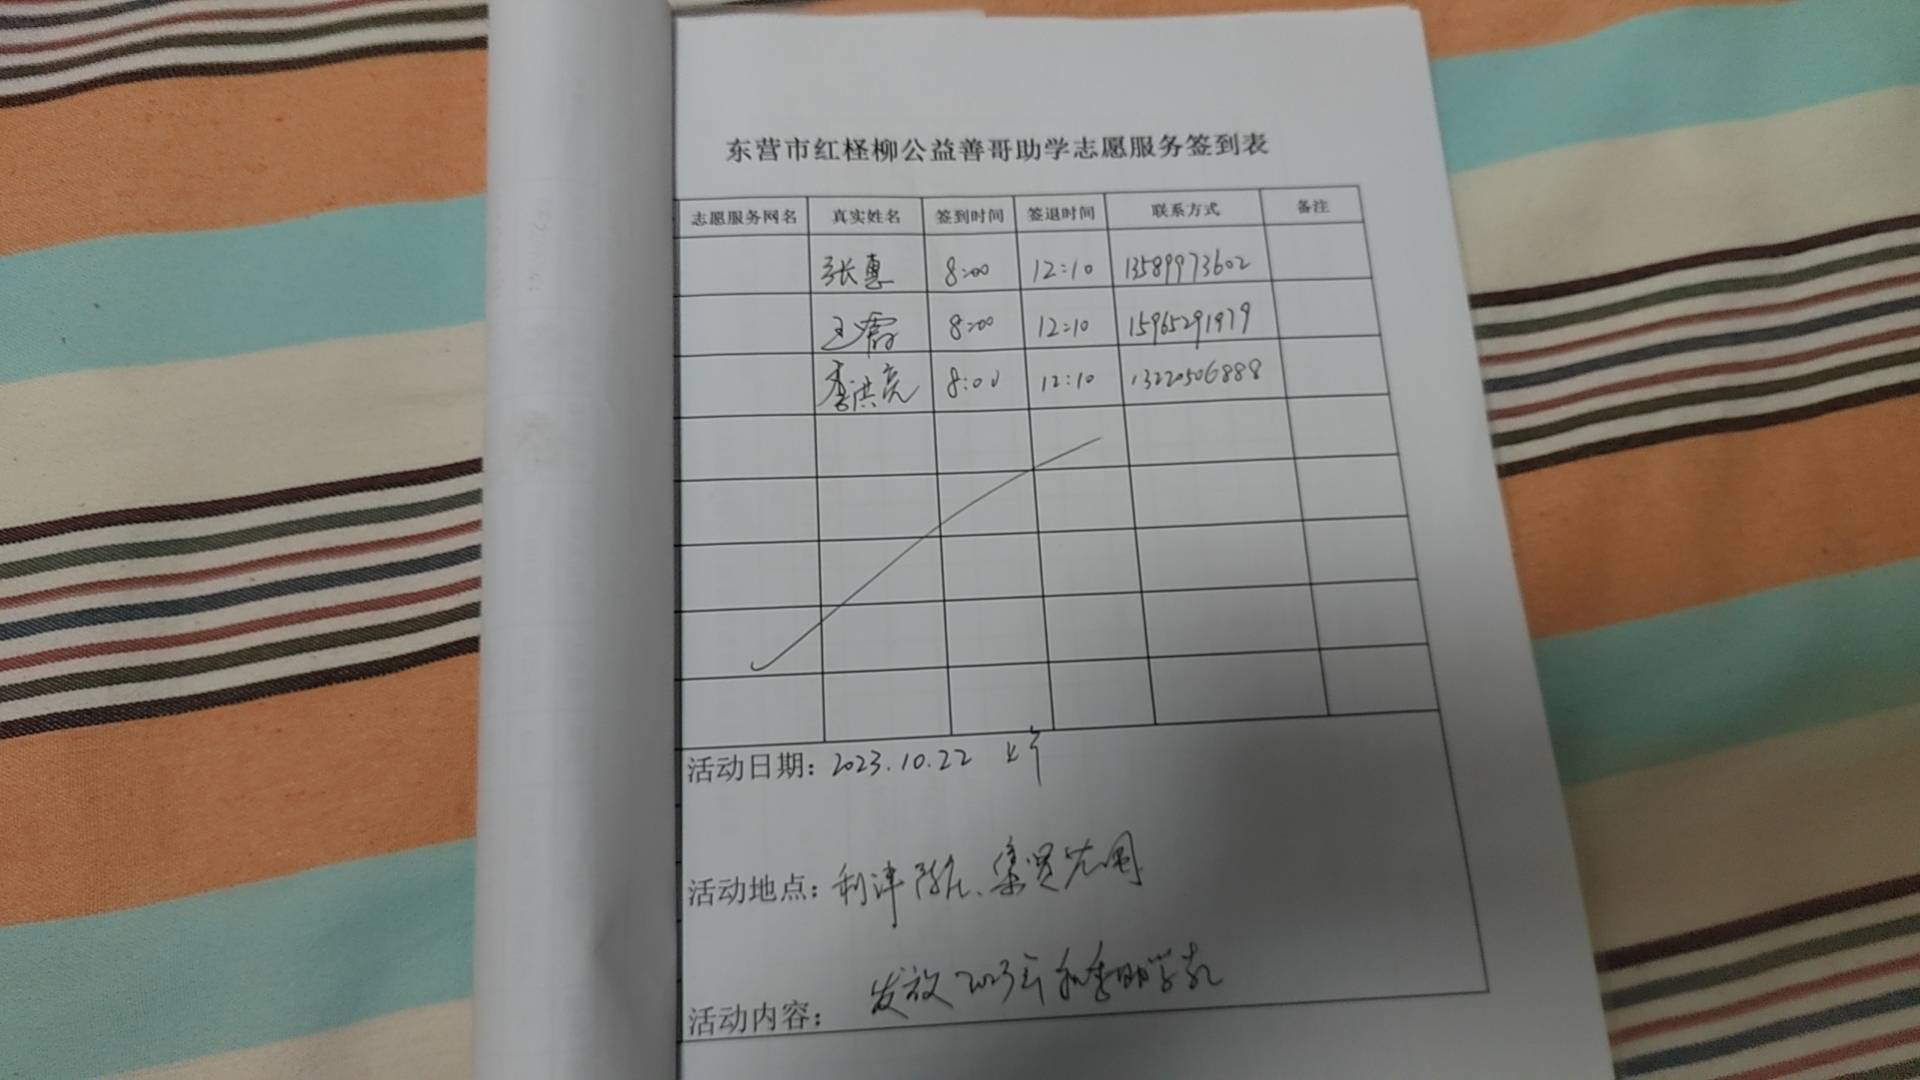 东营市红柽柳公益善哥助学志愿服务签到表
志愿服务网名 真实姓名 签到时间 签退时间 联系方式 备注
张惠 8:00 12:10 13589973602
王霞 8:00 12:10 15965291979
李洪亮 8:00 12:10 13220506888
活动日期: 2023.10.22 上午
活动地点: 利津 陈庄、集贤
活动内容: 发放2023年秋季助学款